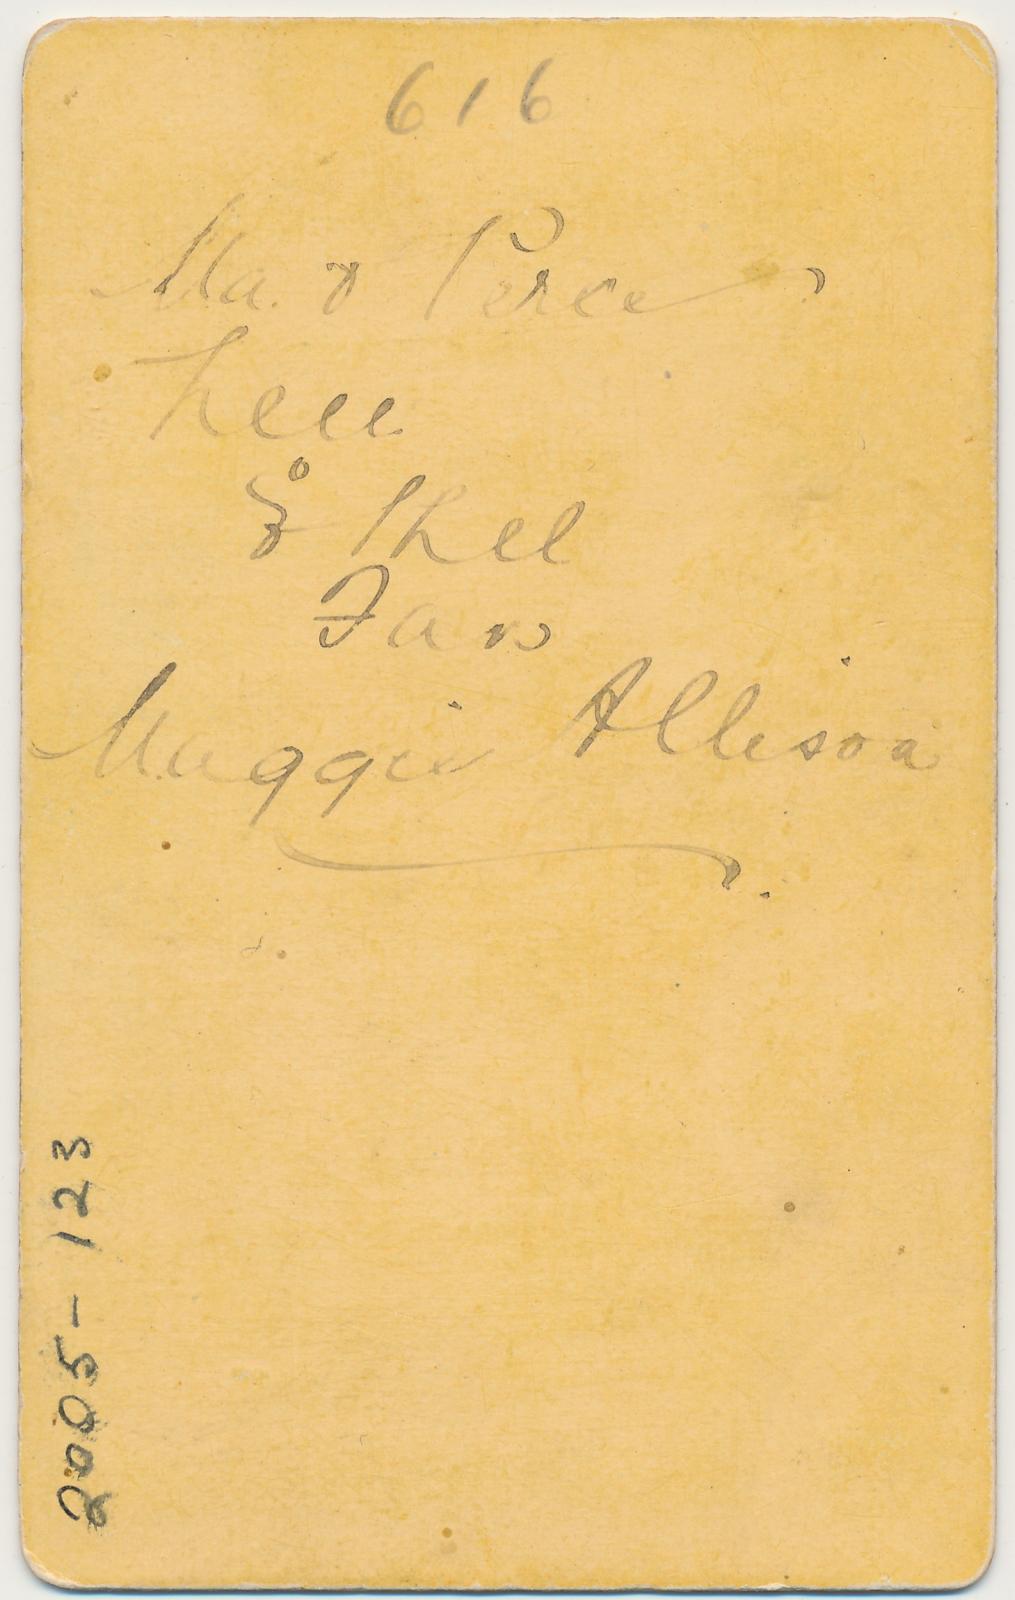 616
Ma. & Perce
Lell
Ethel
Fan
Maggie Allison
2005-123